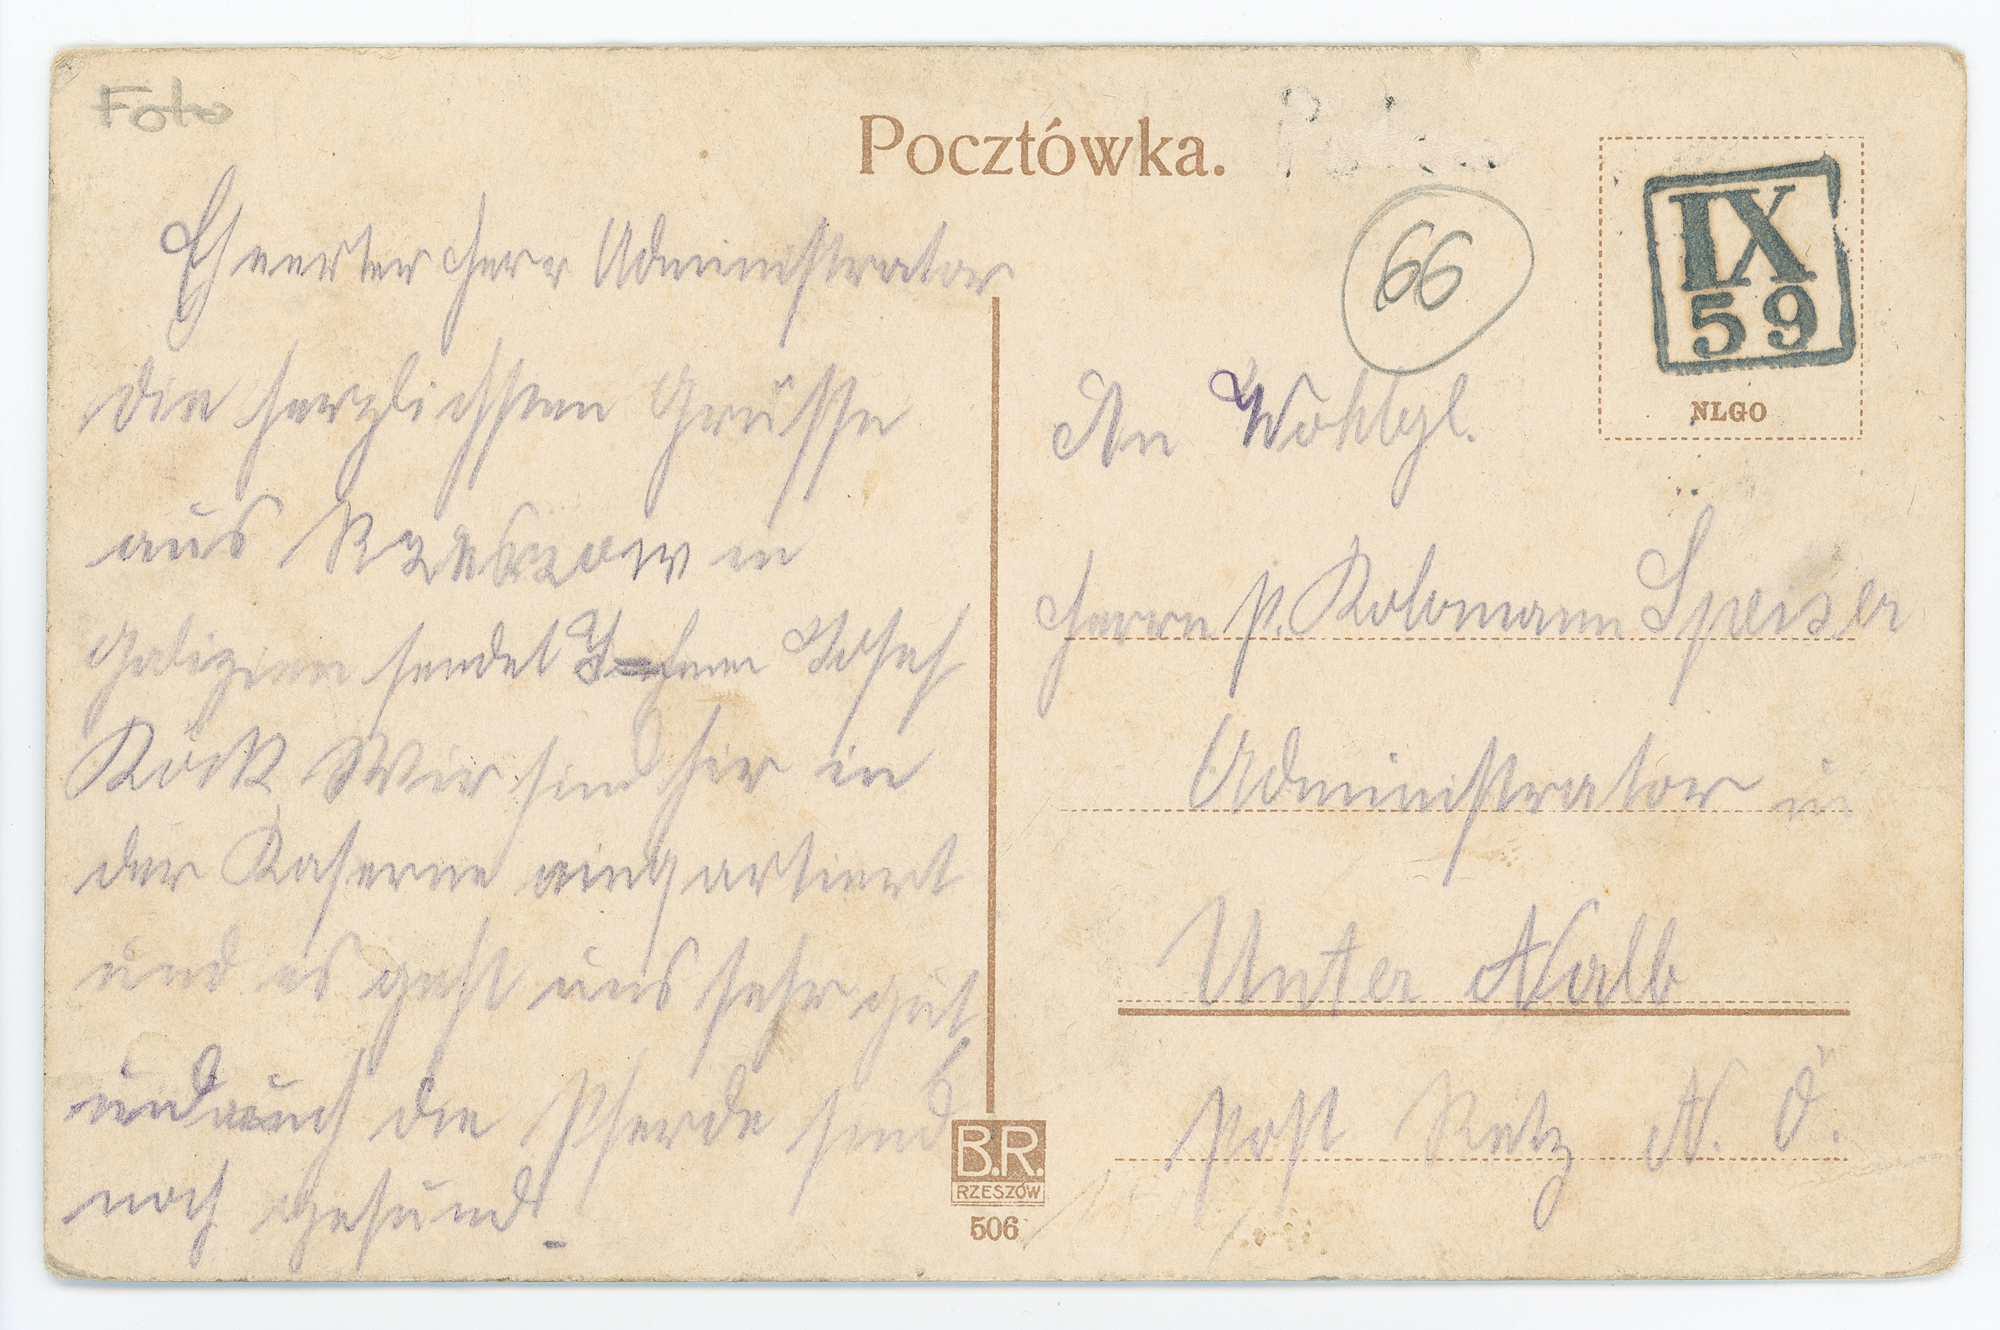 Foto
Pocztówka.
66
IX
59
NLGO
Ehrenwerter Herr Administrator
die herzlichsten Grüsse
aus Rzeszow in
Galizien sendet Ihnen Josef
Köck Wir sind hir in
der Kaserne einqartiert
und es geht uns sehr gut
und auch die Pferde sind
noch gesund.
An Wohlgl.
Herrn p. Kolomann Speiser
Administrator in
Unter Nalb
Post Retz N. Ö.
B.R.
RZESZÓW
506